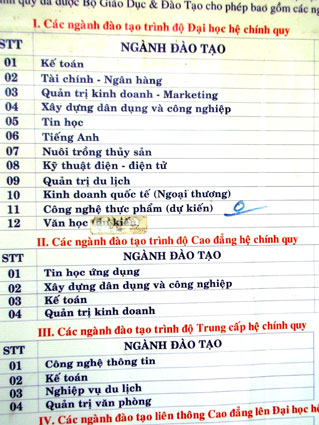 quy đã được Bộ Giáo Dục & Đào Tạo cho phép bao gồm các ng
I. Các ngành đào tạo trình độ Đại học hệ chính quy
STT NGÀNH ĐÀO TẠO
01 Kế toán
02 Tài chính - Ngân hàng
03 Quản trị kinh doanh - Marketing
04 Xây dựng dân dụng và công nghiệp
05 Tin học
06 Tiếng Anh
07 Nuôi trồng thủy sản
08 Kỹ thuật điện - điện tử
09 Quản trị du lịch
10 Kinh doanh quốc tế (Ngoại thương)
11 Công nghệ thực phẩm (dự kiến)
12 Văn học (dự kiến)
II. Các ngành đào tạo trình độ Cao đẳng hệ chính quy
STT NGÀNH ĐÀO TẠO
01 Tin học ứng dụng
02 Xây dựng dân dụng và công nghiệp
03 Kế toán
04 Quản trị kinh doanh
III. Các ngành đào tạo trình độ Trung cấp hệ chính quy
STT NGÀNH ĐÀO TẠO
01 Công nghệ thông tin
02 Kế toán
03 Nghiệp vụ du lịch
04 Quản trị văn phòng
IV. Các ngành đào tạo liên thông Cao đẳng lên Đại học hệ